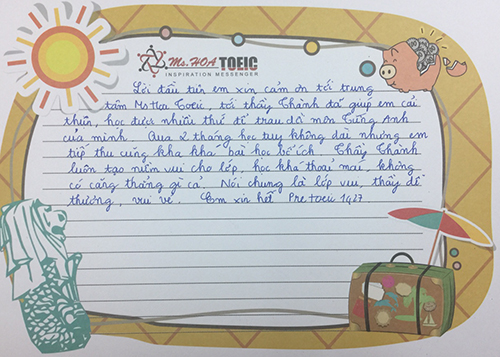 Ms.HOA TOEIC
INSPIRATION MESSENGER
Lời đầu tiên em xin cảm ơn tới trung
tâm Ms Hoa Toeic, tới thầy Thành đã giúp em cải
thiện, học được nhiều thứ để trau dồi môn Tiếng Anh
của mình. Qua 2 tháng học tuy không dài nhưng em
tiếp thu cũng kha khá bài học bổ ích. Thầy Thành
luôn tạo niềm vui cho lớp, học khá thoải mái, không
có căng thẳng gì cả. Nói chung là lớp vui, thầy dễ
thương, vui vẻ. Em xin hết. Pre toeic 1927.